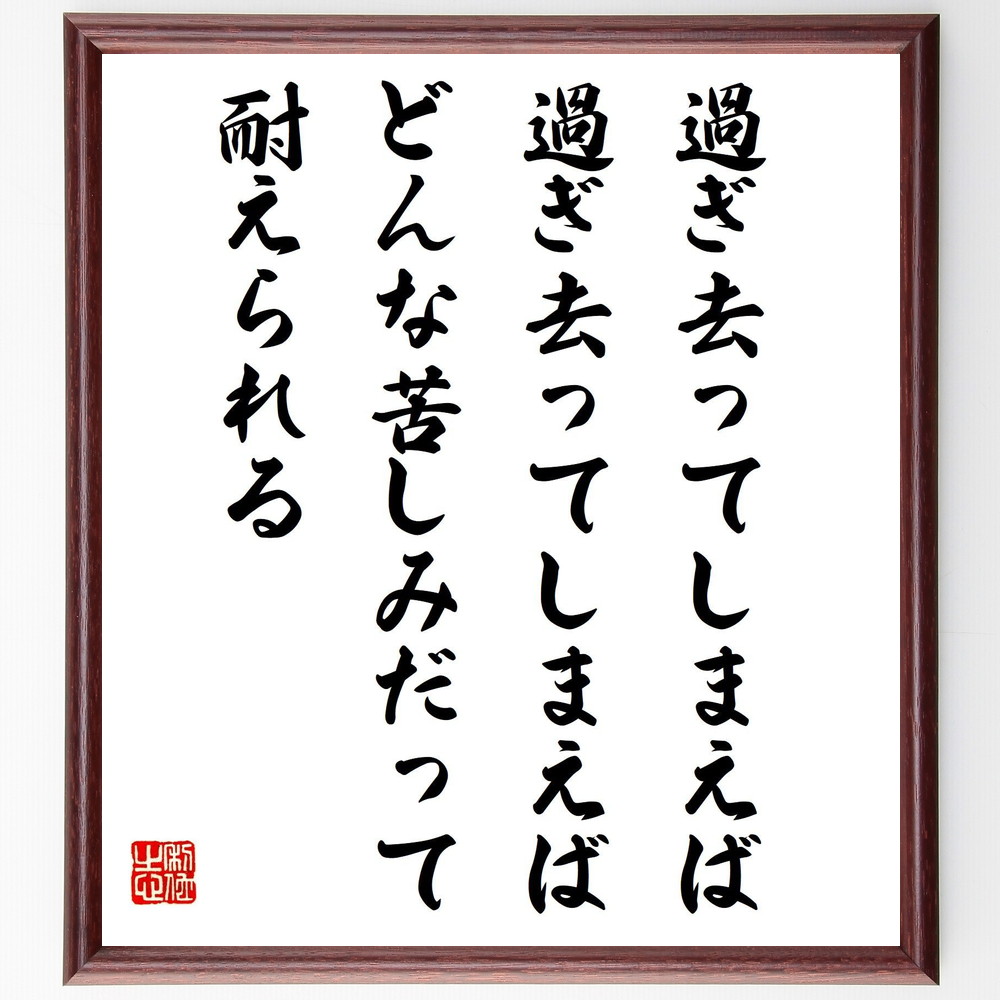 過ぎ去ってしまえば
過ぎ去ってしまえば
どんな苦しみだって
耐えられる